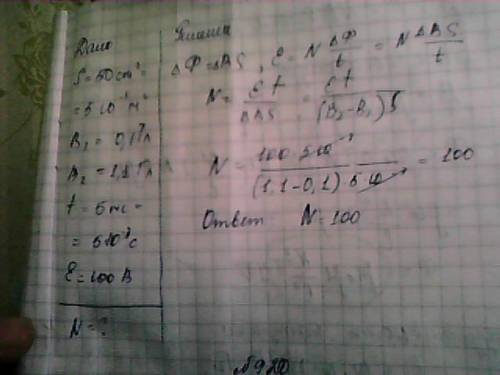 Дано
S = 50 cm² =
= 5·10⁻³ м²
B₁ = 0,1 Тл
B₂ = 1,1 Тл
t = 5 мс =
= 5·10⁻³ с
Ɛ = 100 В
N = ?
Решение
ΔΦ = ΔBS, Ɛ = N ΔΦ/t = N ΔBS/t
N = Ɛt/ΔBS = Ɛt/(B₂-B₁)S
N = 100·5·10⁻³/(1,1-0,1)·5·10⁻³ = 100
Ответ N = 100
№920